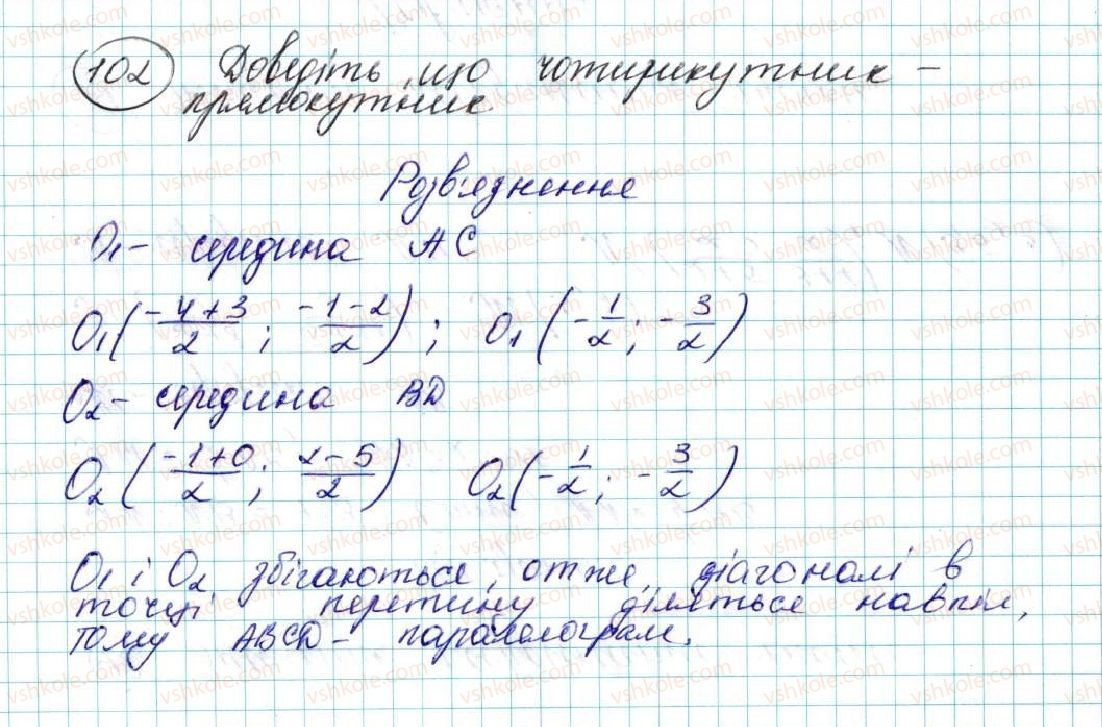 102 Доведіть, що чотирикутник –
прямокутник
Розв'язнення
O₁ – середина AC
O₁(-4+3/2; -1-2/2); O₁(-1/2; -3/2)
O₂ – середина BD
O₂(-1+0/2; 2-5/2) O₂(-1/2; -3/2)
O₁ і O₂ збігаються, отже, діагоналі в
точці перетину діляться навпіл,
тому ABCD – паралелограм.